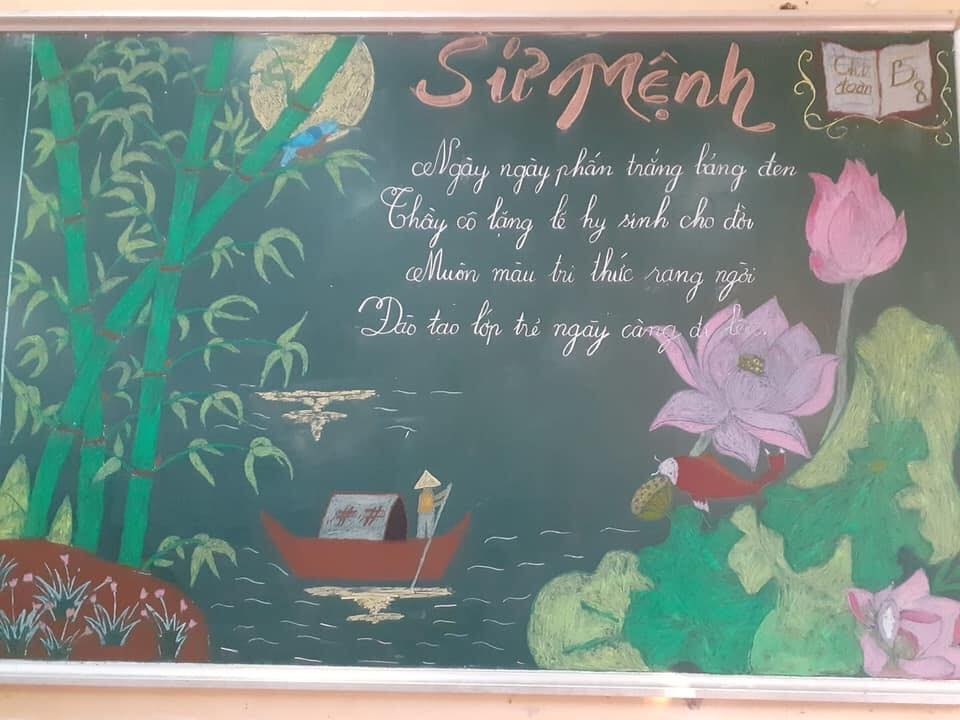 Sứ Mệnh
Chi đoàn
B8
Ngày ngày phấn trắng bảng đen
Thầy cô lặng lẽ hy sinh cho đời
Muôn màu tri thức rạng ngời
Đào tạo lớp trẻ ngày càng đi